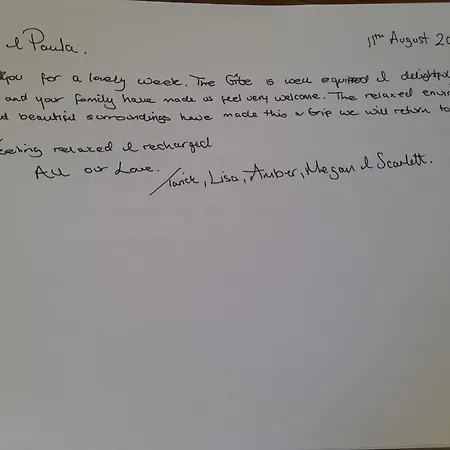 & Paula. 11th August 20
You for a lovely week. The Gîte is well equipped & delightful
and your family have made us feel very welcome. The relaxed envir
beautiful surroundings have made this a Grip we will return to
feeling relaxed & recharged
All our Love.
Tarick, Lisa, Amber, Megan & Scarlett.